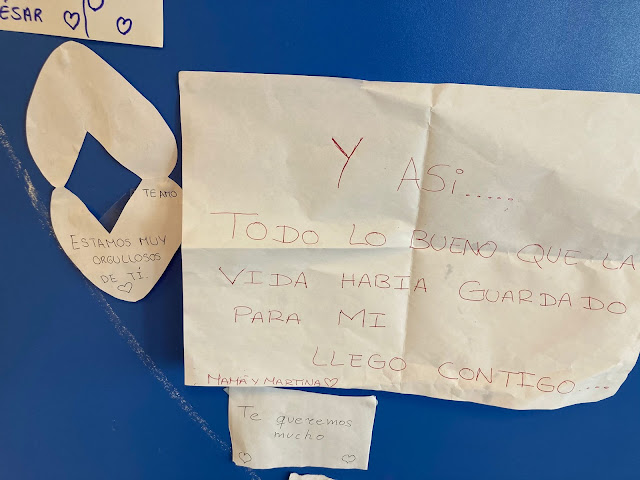 ÉSAR
TE AMO
ESTAMOS MUY
ORGULLOSOS
DE TÍ.
Y ASi.....
TODO LO BUENO QUE LA
VIDA HABIA GUARDADO
PARA MI
LLEGO CONTIGO....
MAMÁ Y MARTINA
Te queremos
mucho